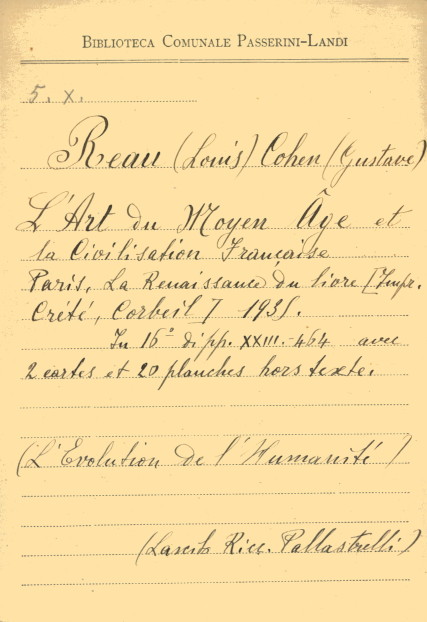 BIBLIOTECA COMUNALE PASSERINI-LANDI
5. X.
Reau (Louis) Cohen (Gustave)
L'Art du Moyen Âge et
la Civilisation Française
Paris, La Renaissance du livre [Impr.
Crété, Corbeil] 1935.
In 16° di pp. XXIII-464 avec
2 cartes et 20 planches hors texte.
(L'Evolution de l'Humanité)
(Lascito Ricc. Pallastrelli)